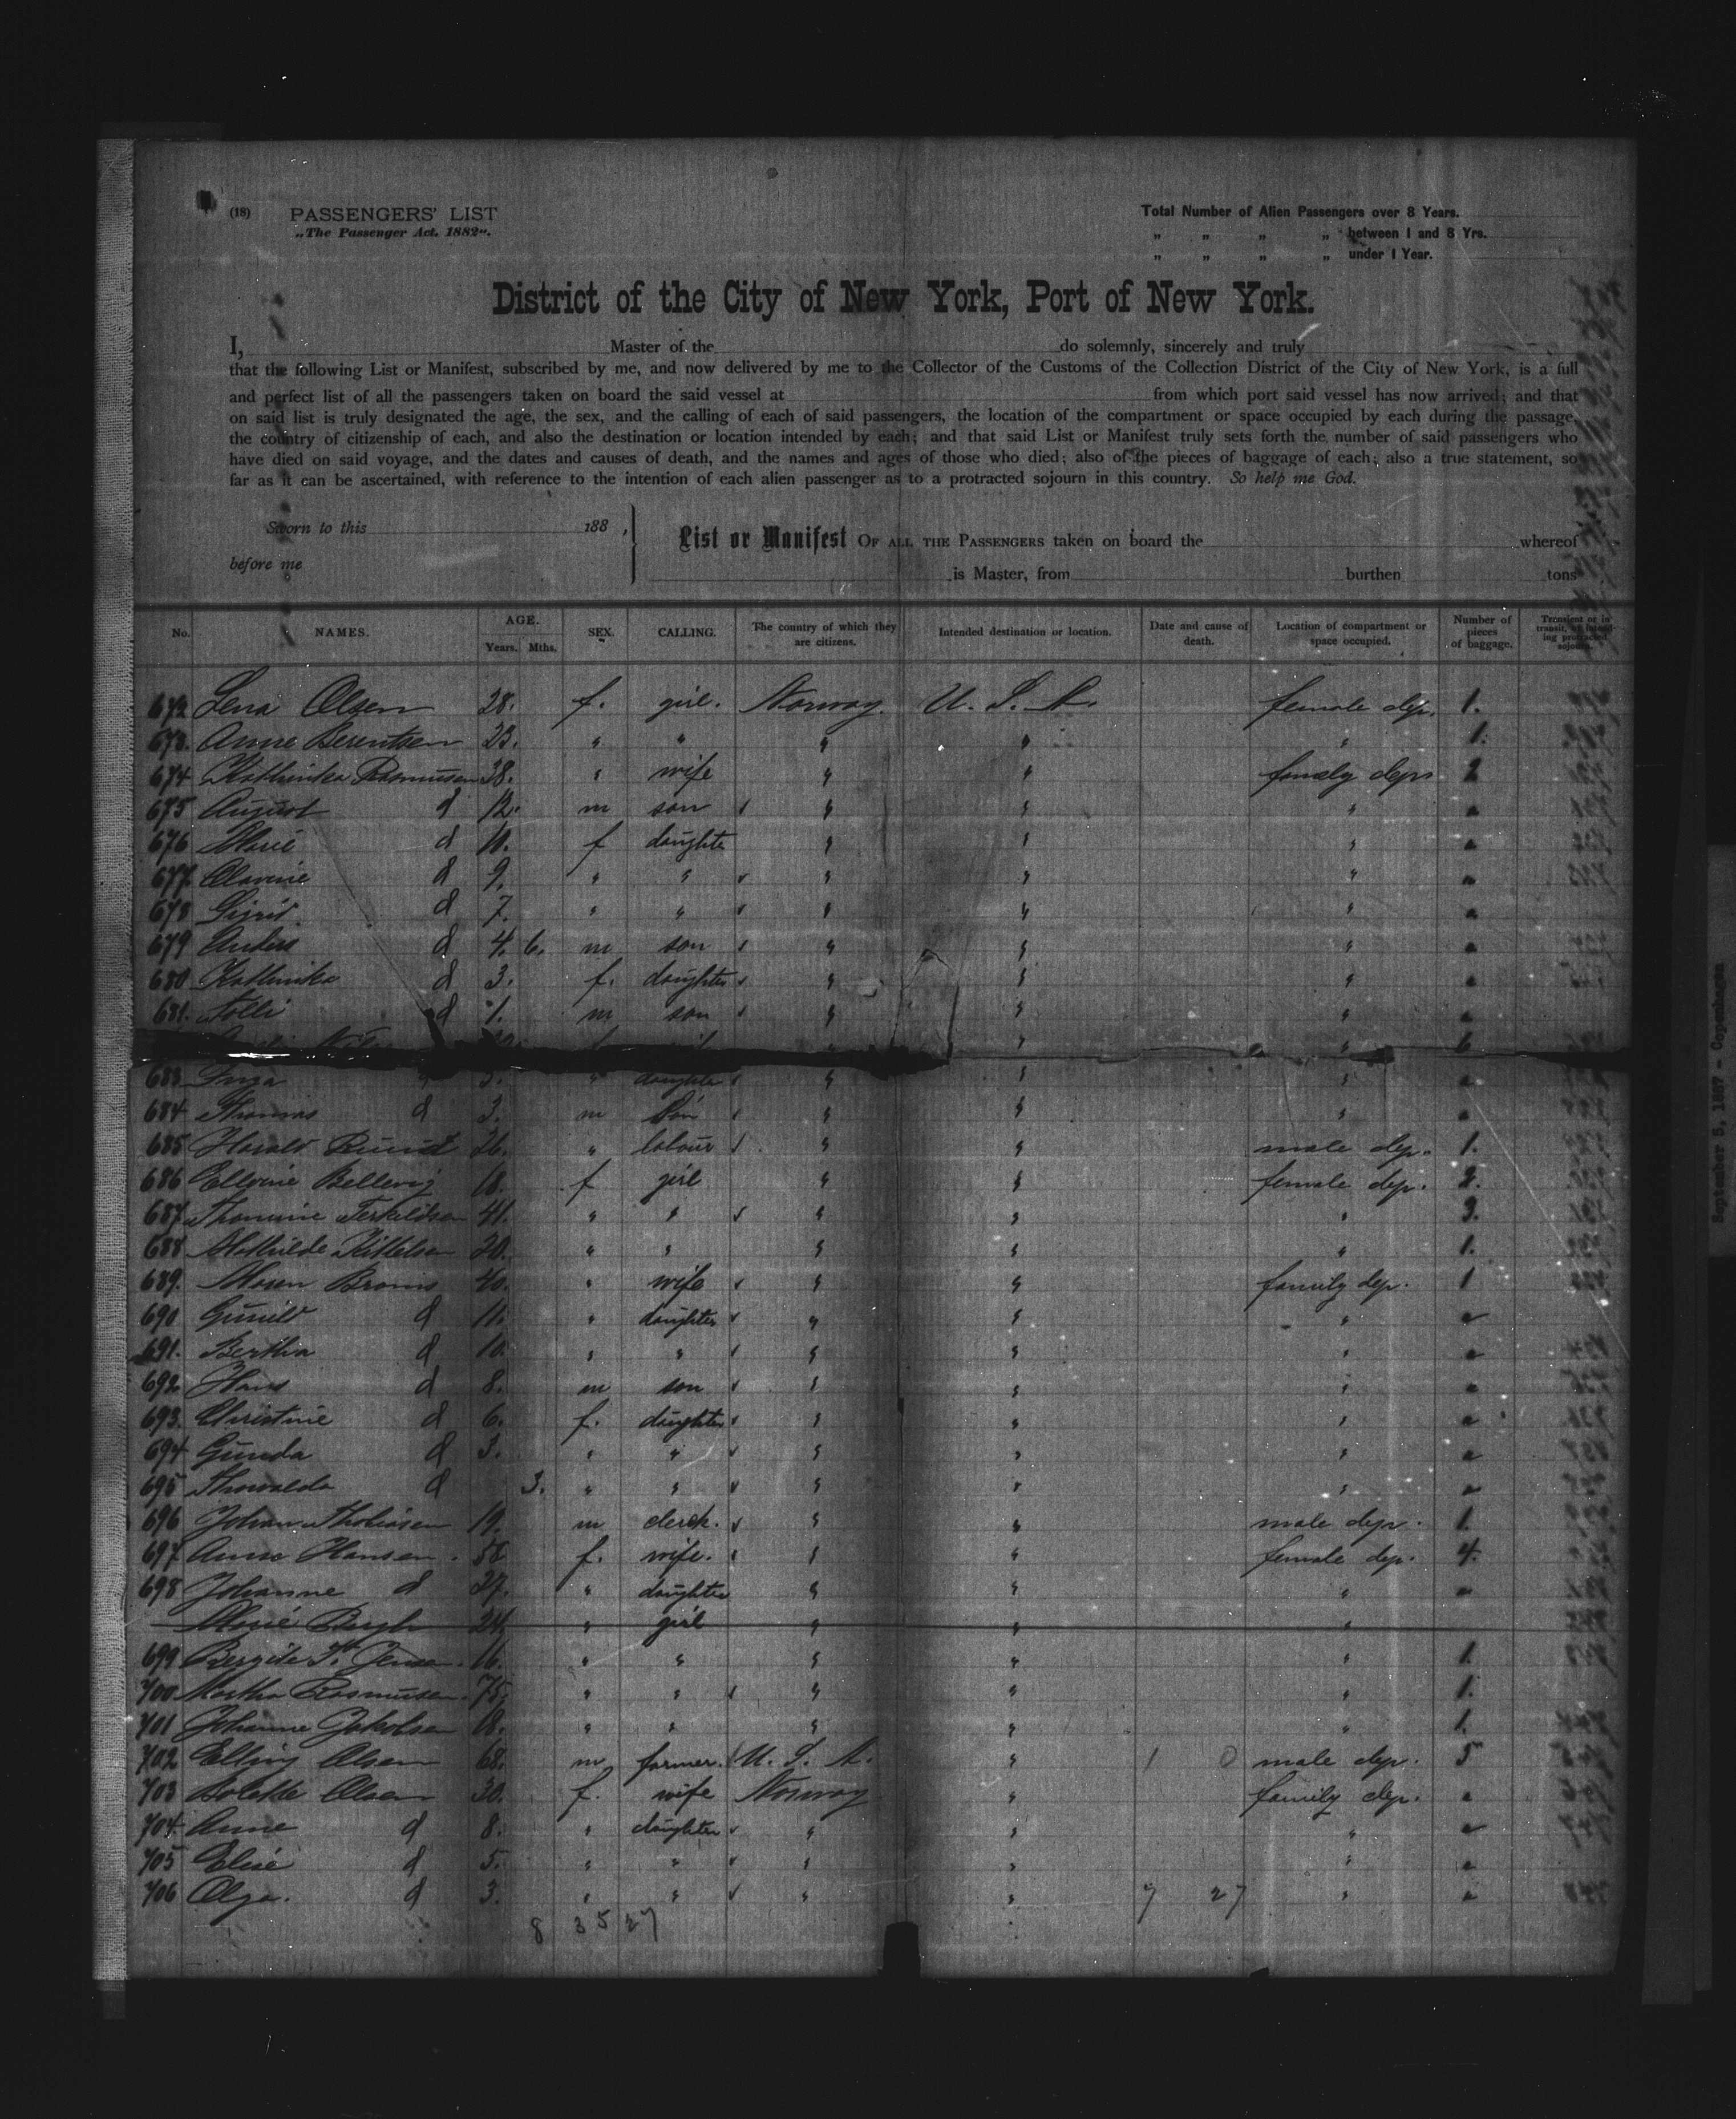 (18) PASSENGERS' LIST
„The Passenger Act. 1882".
Total Number of Alien Passengers over 8 Years.
„ „ „ „ between 1 and 8 Yrs.
„ „ „ „ under 1 Year.
District of the City of New York, Port of New York.
I, Master of the do solemnly, sincerely and truly
that the following List or Manifest, subscribed by me, and now delivered by me to the Collector of the Customs of the Collection District of the City of New York, is a full
and perfect list of all the passengers taken on board the said vessel at from which port said vessel has now arrived; and that
on said list is truly designated the age, the sex, and the calling of each of said passengers, the location of the compartment or space occupied by each during the passage,
the country of citizenship of each, and also the destination or location intended by each; and that said List or Manifest truly sets forth the number of said passengers who
have died on said voyage, and the dates and causes of death, and the names and ages of those who died; also of the pieces of baggage of each; also a true statement, so
far as it can be ascertained, with reference to the intention of each alien passenger as to a protracted sojourn in this country. So help me God.
Sworn to this 188 ,
before me
List or Manifest OF ALL THE PASSENGERS taken on board the whereof
is Master, from burthen tons
No. NAMES. AGE. Years. Mths. SEX. CALLING. The country of which they are citizens. Intended destination or location. Date and cause of death. Location of compartment or space occupied. Number of pieces of baggage. Transient or in transit, or intending protracted sojourn.
672 Lena Olsen 28. f. girl. Norway. U. S. A. female dep. 1.
673. Anne Berentsen 23. " " " " " 1.
674 Kathinka Rasmusen 38. " wife " " family dep.
675 August d 12. m son " " "
676 Marie d f daughter " " "
677 d 9. " " " " "
678 Sigrid d 7. " " " " "
679 Anders d 4. 6. m son " " "
680 Kathinka d 3. f. daughter " " "
681. d 1. m son " " "
683 Inga daughter " " "
684 Thomas d 3. m son " " "
685 Harald 26. " labour " " male dep. 1.
686 Bellevig 18. f girl " " female dep. 2.
687 Thomine Terkildsen 41. " " " " " 3.
688 Mathilde Kittelsen 20. " " " " " 1.
689. Maren 40. " wife " " family dep. 1
690 Gunild d 11. " daughter " " "
691. Bertha d 10. " " " " "
692 Hans d 8. m son " " "
693. Christine d 6. f. daughter " " "
694 Gunda d 3. " " " " "
695 Thorvalda d 3. " " " " "
696 Johan Thobiasen 19. m clerk. " " male dep. 1.
697 Anna Hansen. f. wife. " " female dep. 4.
698 Johanne d 27. " daughter " " "
Marie Bergh 24. " girl " " "
699 Jensen. 16. " " " " " 1.
700 Martha Rasmusen. 75. " " " " " 1.
701 Johanne Jakobsen 18. " " " " " 1.
702 Elling Olsen 68. m farmer. U. S. A. " 1 0 male dep. 5
703 Olsen 30. f. wife Norway " family dep. "
704 Anne d 8. " daughter " " "
705 Elise d 5. " " " " "
706 Olga. d 3. " " " " 7 27 "
8 35 27
September 5, 1887 - Copenhagen